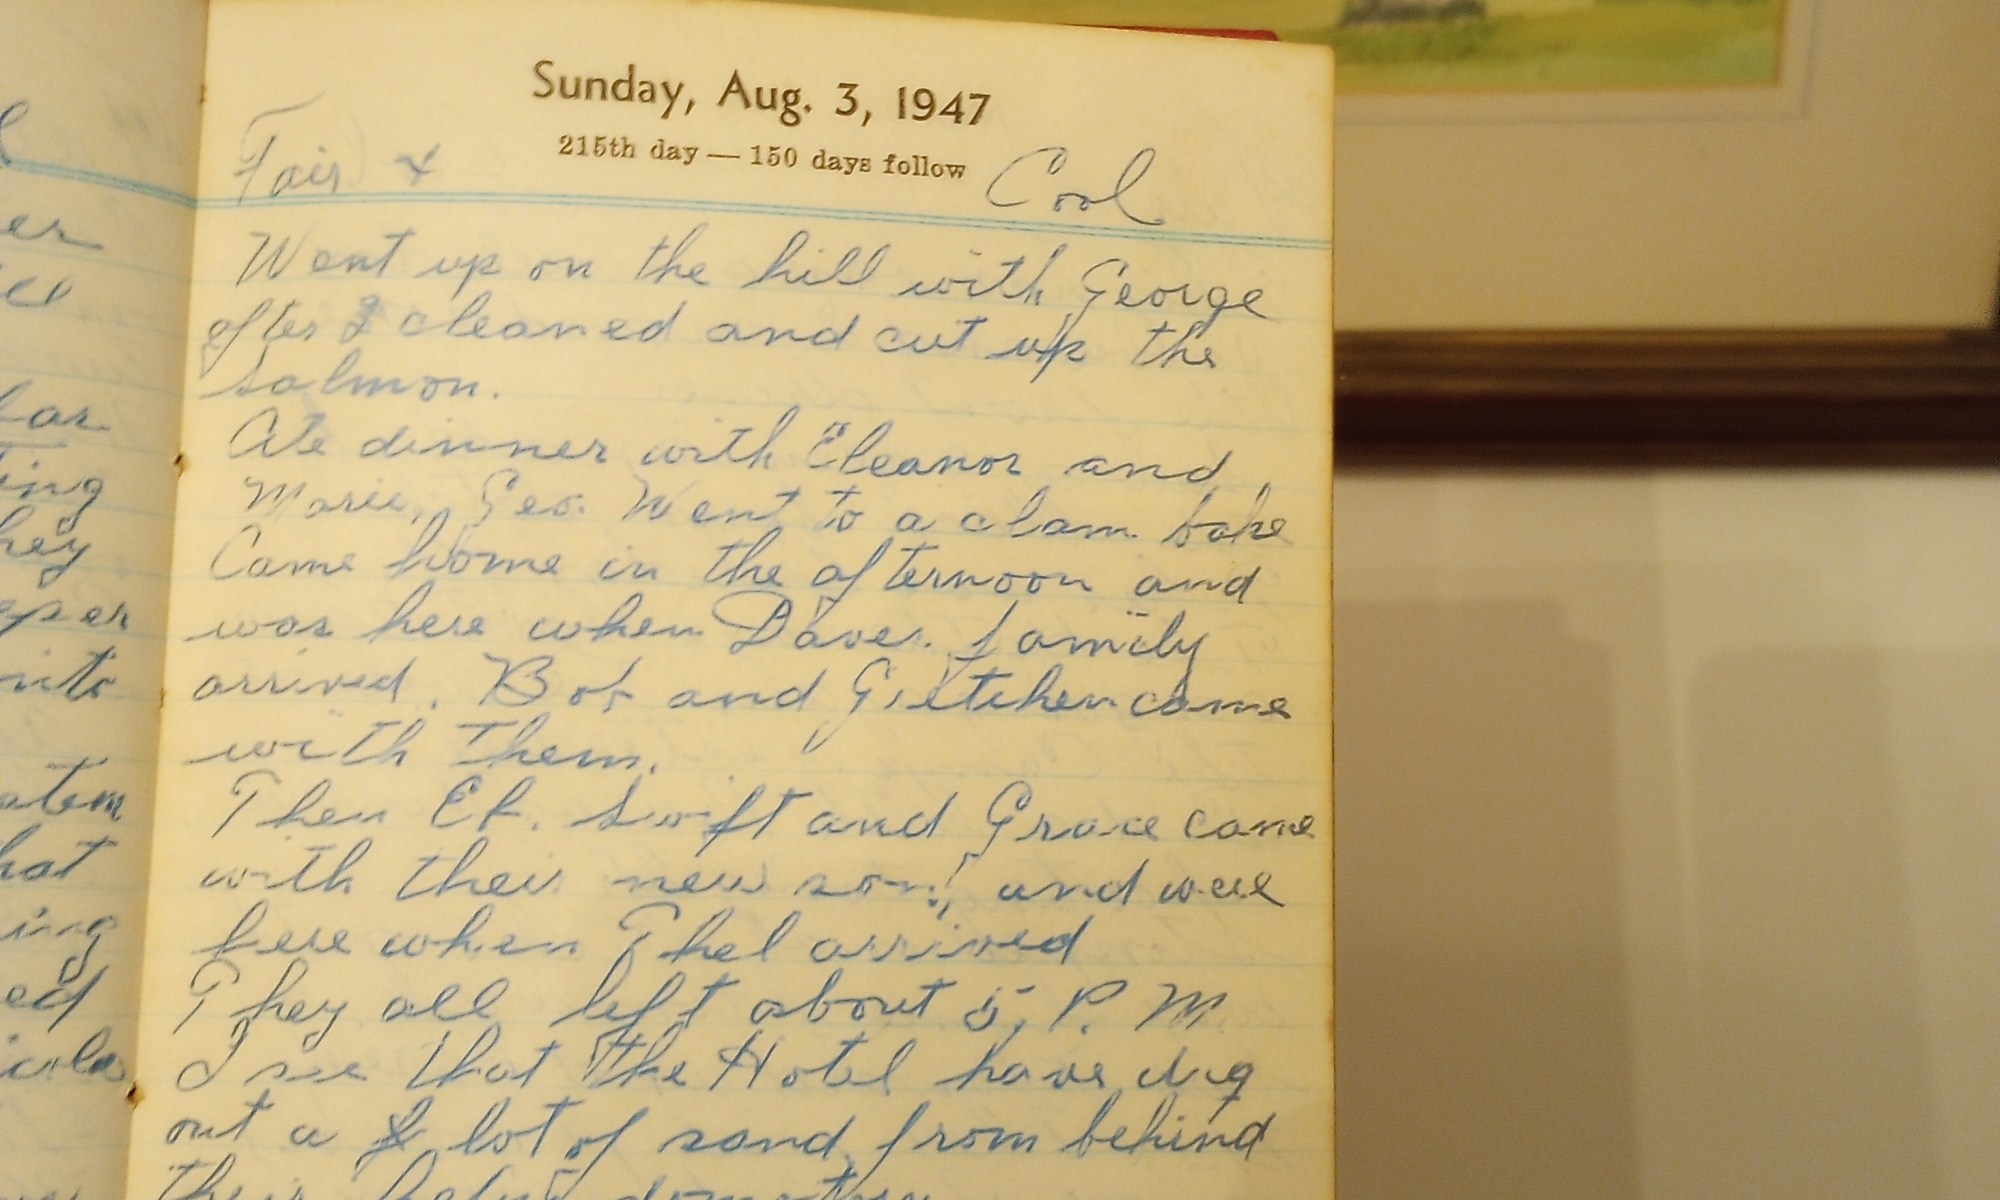 Sunday, Aug. 3, 1947
215th day — 150 days follow
Fair & Cool
Went up on the hill with George
after I cleaned and cut up the
salmon.
Ate dinner with Eleanor and
Marie, Geo. Went to a clam bake
Came home in the afternoon and
was here when Daves family
arrived. Bob and Gretchen came
with them.
Then Ef. Swift and Grace came
with their new son, and were
here when Thel arrived
They all left about 5, P. M.
I see that the Hotel have dug
out a lot of sand from behind
their help
er
far
ting
hey
eper
into
hat
ing
ed